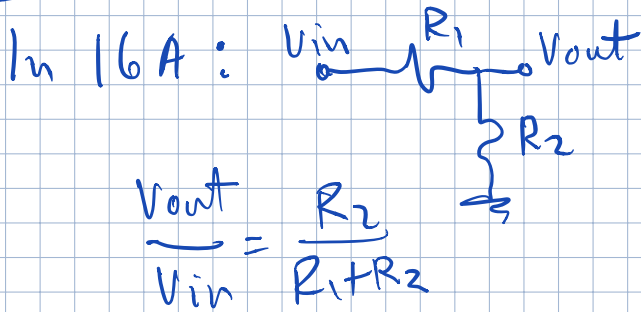 In 16A: Vin R₁ Vout
R₂
Vout/Vin = R₂/(R₁+R₂)